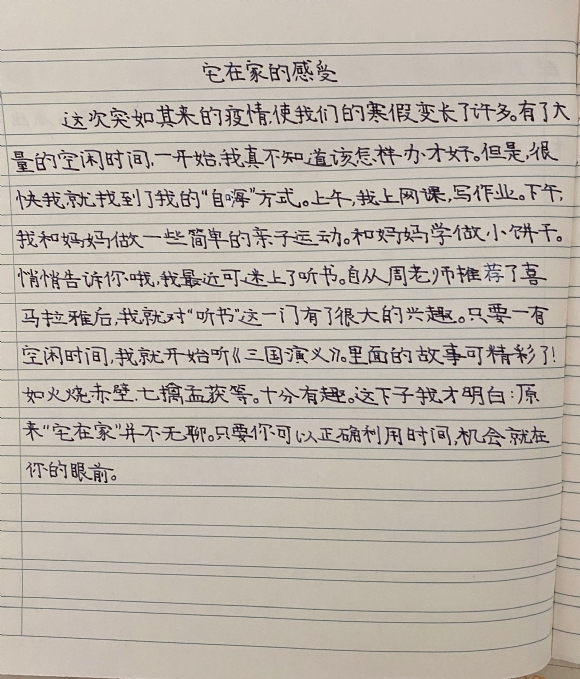 宅在家的感受
这次突如其来的疫情,使我们的寒假变长了许多。有了大
量的空闲时间,一开始,我真不知道该怎样办才好。但是,很
快我就找到了我的“自嗨”方式。上午,我上网课,写作业。下午,
我和妈妈做一些简单的亲子运动。和妈妈学做小饼干。
悄悄告诉你哦,我最近可迷上了听书。自从周老师推荐了喜
马拉雅后,我就对“听书”这一门有了很大的兴趣。只要一有
空闲时间,我就开始听《三国演义》。里面的故事可精彩了!
如火烧赤壁,七擒孟获等。十分有趣。这下子我才明白:原
来“宅在家”并不无聊。只要你可以正确利用时间,机会就在
你的眼前。